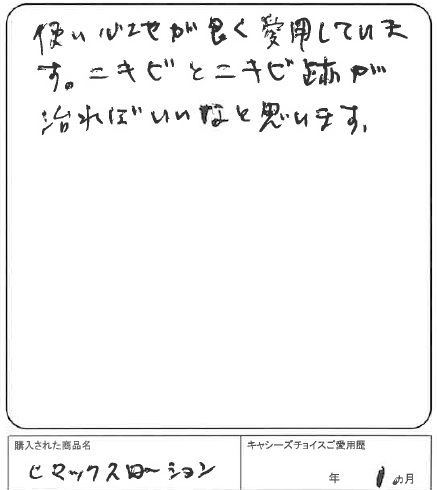 使い心地が良く愛用していま
す。ニキビとニキビ跡が
治ればいいなと思います。
購入された商品名
ヒマックスローション
キャシーズチョイスご愛用歴
年 1ヵ月